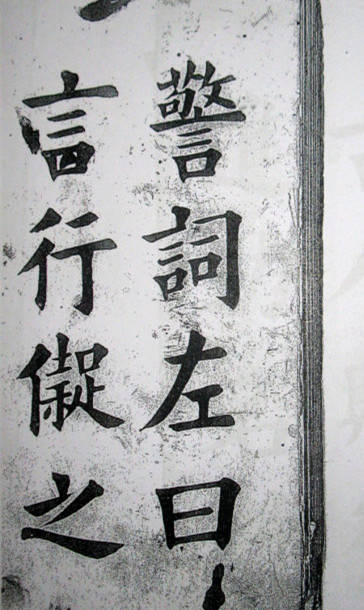 警詞左曰
言行儗之